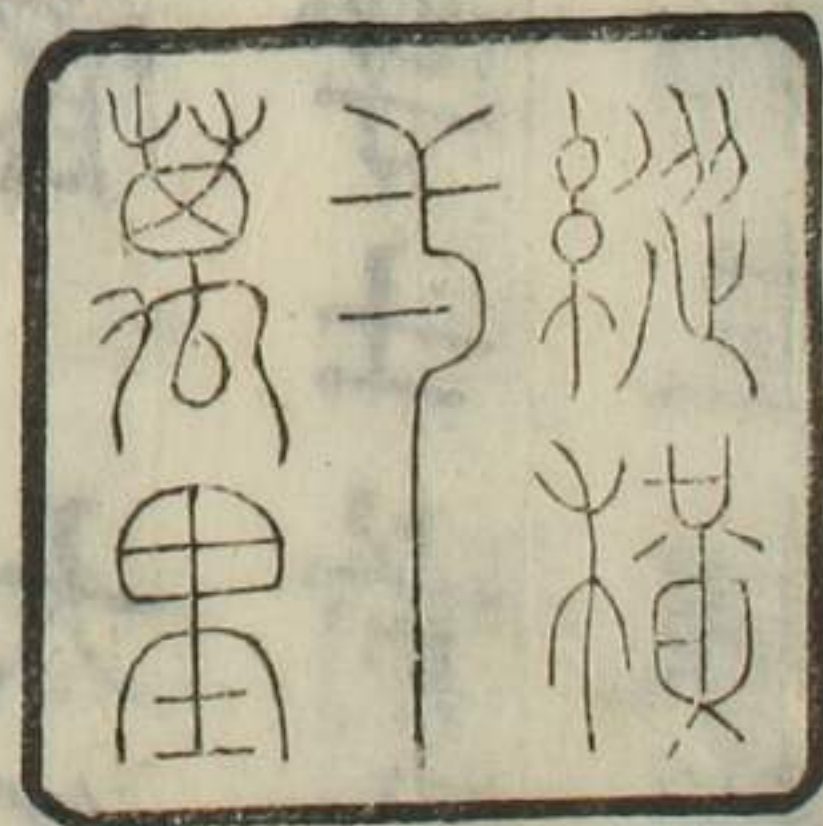 縱橫
萬里